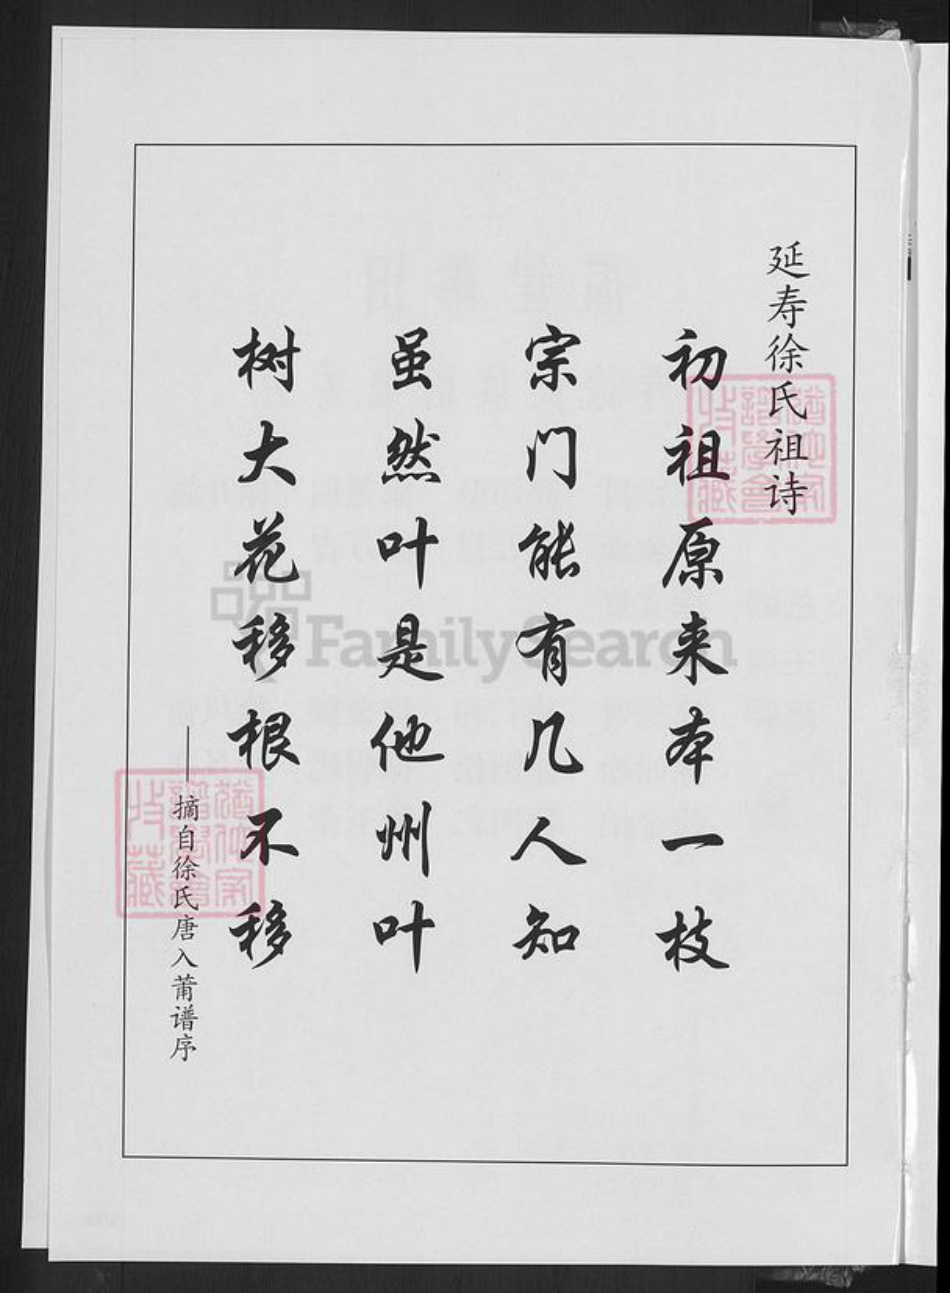 延寿徐氏祖诗
初祖原来本一枝
宗门能有几人知
虽然叶是他州叶
树大花移根不移
——摘自徐氏唐入莆谱序
FamilySearch